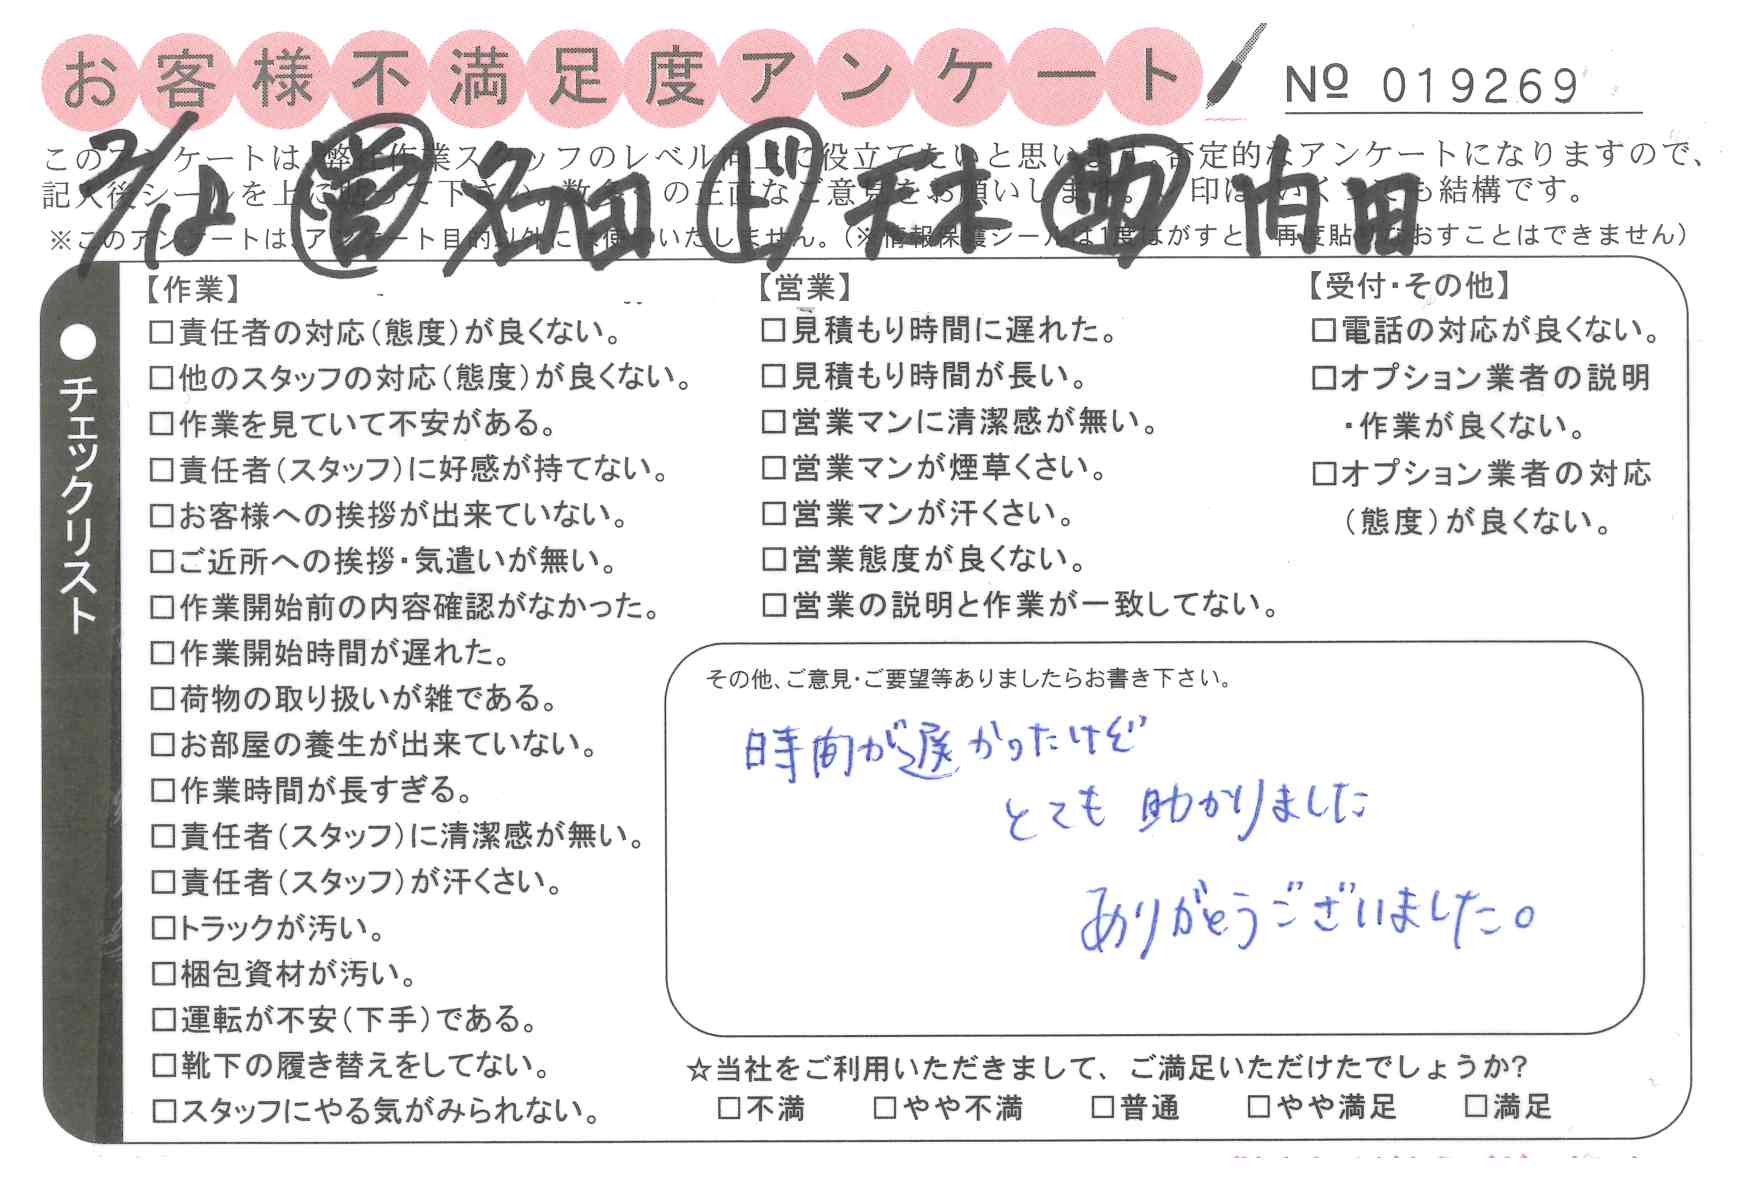 お客様不満足度アンケート
Nº 019269
このアンケートは、弊社作業スタッフのレベル向上に役立てたいと思います。否定的なアンケートになりますので、
記入後シールを上に貼って下さい。数多くの正直なご意見をお願いします。レ印はいくつでも結構です。
※このアンケートは、アンケート目的以外には使用いたしません。(※情報保護シールは1度はがすと、再度貼りなおすことはできません)
7/12 営 名田 ド 天本 助 内田
●チェックリスト
【作業】
□責任者の対応(態度)が良くない。
□他のスタッフの対応(態度)が良くない。
□作業を見ていて不安がある。
□責任者(スタッフ)に好感が持てない。
□お客様への挨拶が出来ていない。
□ご近所への挨拶・気遣いが無い。
□作業開始前の内容確認がなかった。
□作業開始時間が遅れた。
□荷物の取り扱いが雑である。
□お部屋の養生が出来ていない。
□作業時間が長すぎる。
□責任者(スタッフ)に清潔感が無い。
□責任者(スタッフ)が汗くさい。
□トラックが汚い。
□梱包資材が汚い。
□運転が不安(下手)である。
□靴下の履き替えをしてない。
□スタッフにやる気がみられない。
【営業】
□見積もり時間に遅れた。
□見積もり時間が長い。
□営業マンに清潔感が無い。
□営業マンが煙草くさい。
□営業マンが汗くさい。
□営業態度が良くない。
□営業の説明と作業が一致してない。
【受付・その他】
□電話の対応が良くない。
□オプション業者の説明
・作業が良くない。
□オプション業者の対応
(態度)が良くない。
その他、ご意見・ご要望等ありましたらお書き下さい。
時間が遅かったけど
とても 助かりました
ありがとうございました。
☆当社をご利用いただきまして、ご満足いただけたでしょうか?
□不満 □やや不満 □普通 □やや満足 □満足